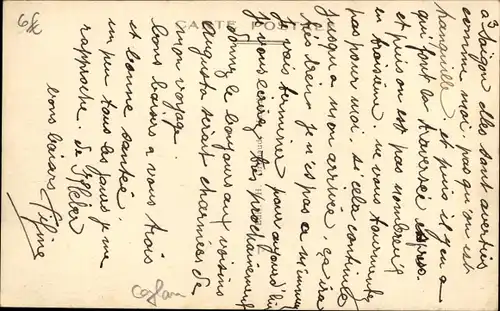 CARTE POSTALE
3
à Saigon elles sont averties
comme moi, pas qu'on est
tranquille. et puis il y en a
qui font la traversée exprès.
et puis on est pas nombreux
en troisième. ne vous tourmentez
pas pour moi. si cela continue
jusqu'à mon arrivée, ça ira
très bien je n'ai pas à m'ennuyer
je vais terminer pour aujourd'hui
je vous écrirai très prochainement
donnez le bonjour aux voisins
Auguste serait charmé de
mon voyage.
bons baisers à vous trois
et bonne santé.
un peu tous les jours je me
rapproche de Kléber
bons baisers
Ceylan